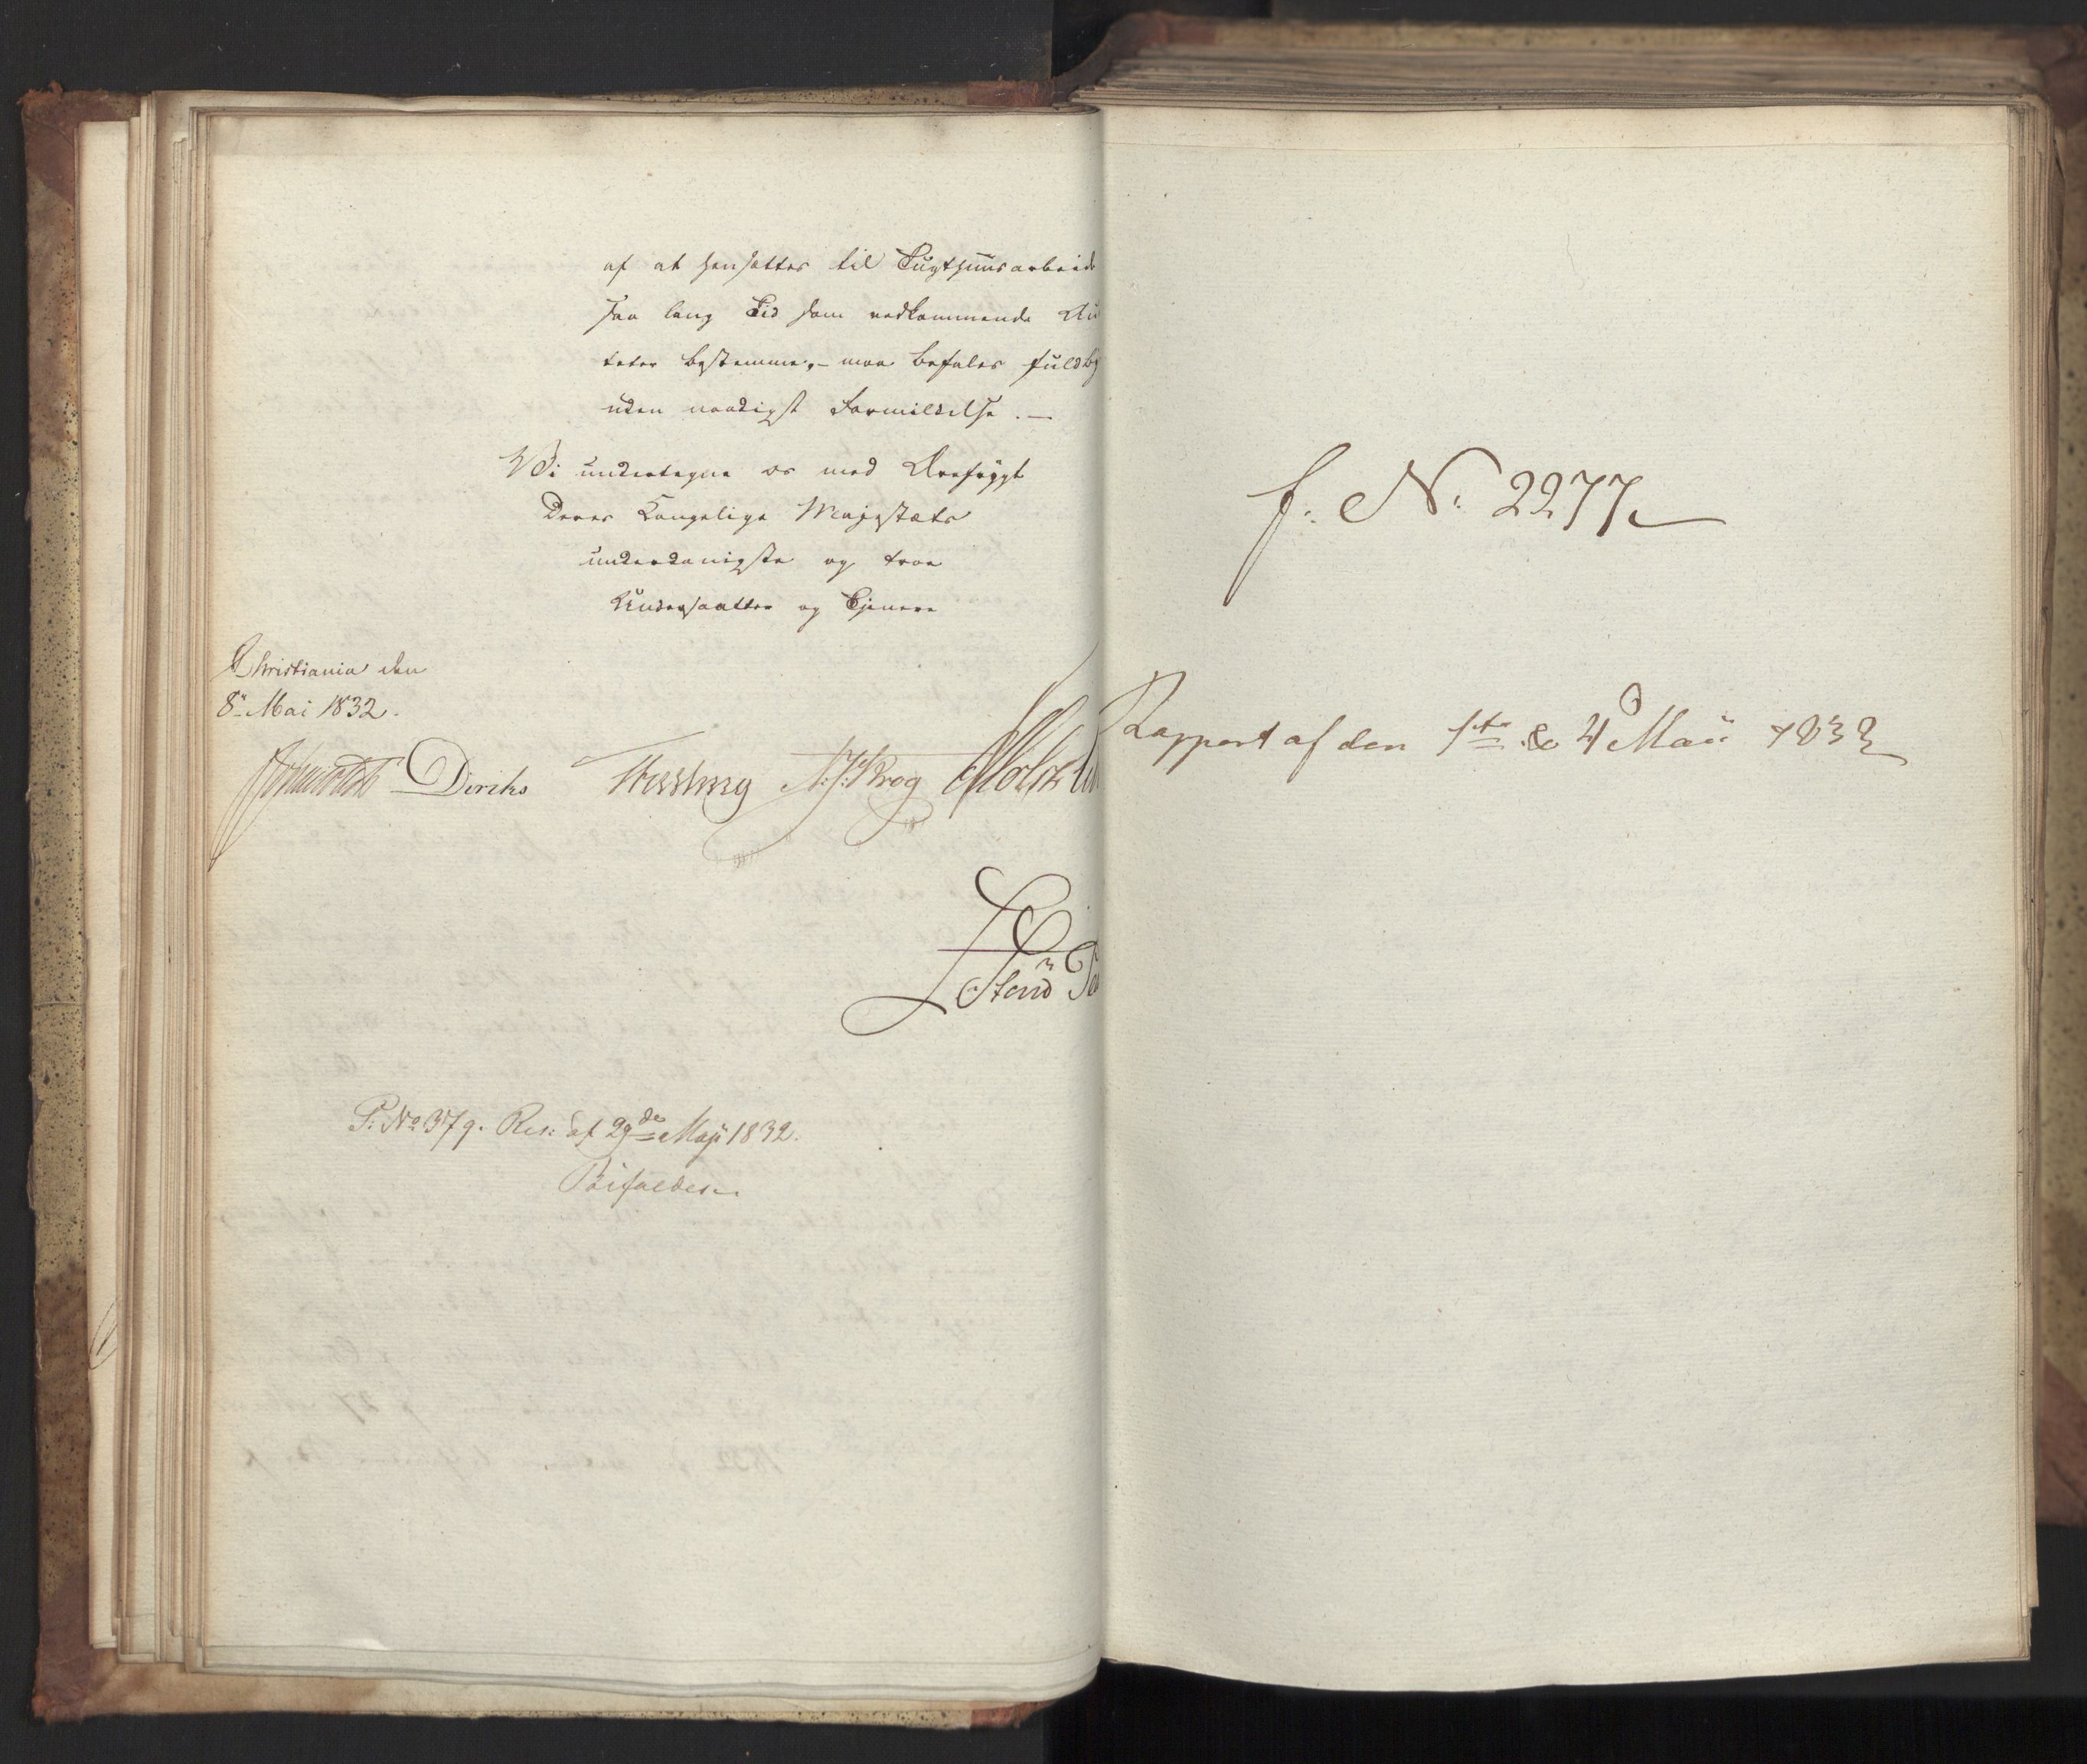 af at hensættes til Tugthuusarbeide
saa lang Tid som vedkommende Au
teter bestemme, – maa befales fuldby
uden naadigst Formildelse. –
Vi undertegne os med Ærefrygt
Deres Kongelige Majestæts
underdanigste og troe
Undersaatter og Tjenere
Christiania den
8de Mai 1832.
Diriks N.J. Krog
P: No 379. Res: af 29de Maji 1832.
Bifaldes.
f: N: 2277
Rapport af den 1ste & 4 Maii 1832